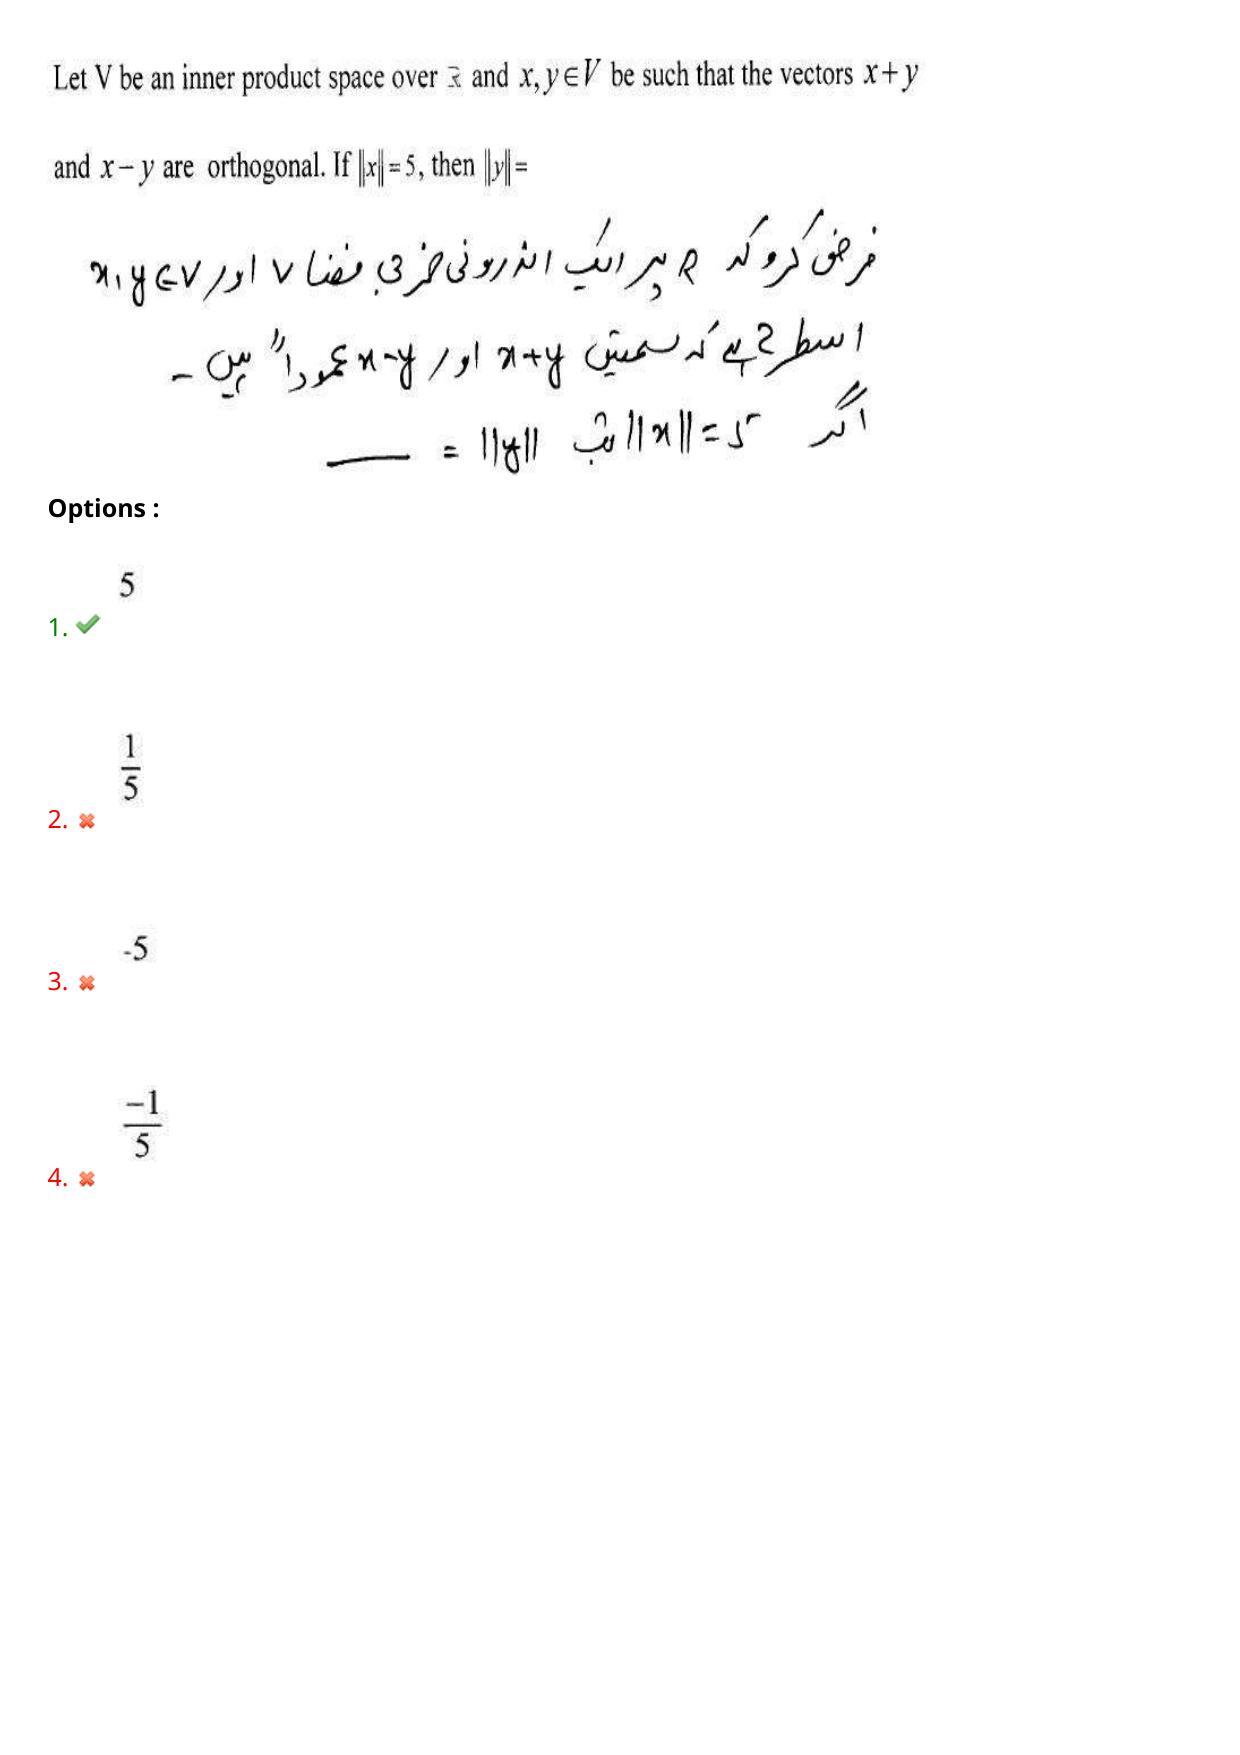 Let V be an inner product space over ℝ and x, y ∈ V be such that the vectors x + y
and x − y are orthogonal. If ‖x‖ = 5, then ‖y‖ =
فرض کرو کہ R پر ایک اندرونی ضربی فضا V اور x, y ∈ V
اسطرح ہے کہ سمتیں x+y اور x-y عموداً ہیں -
اگر ||x|| = 5 تب ||y|| = ____
Options :
5
1.
1/5
2.
-5
3.
−1/5
4.